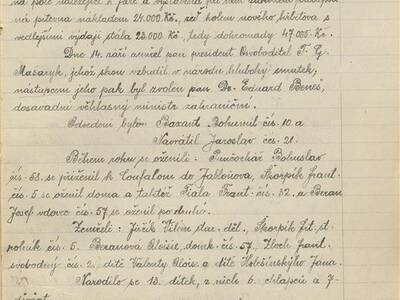 na pitevna nákladem 24.000 Kč, zeď kolem nového hřbitova s
vedlejšími výdaji stála 23.000 Kč, tedy dohromady 47.000 Kč.
Dne 14. září zemřel pan president Osvoboditel T. G.
Masaryk, jehož skon vzbudil v národu hluboký smutek,
nástupcem jeho pak byl zvolen pan Dr. Eduard Beneš,
dosavadní věhlasný ministr zahraniční.
Odvedeni byli: Bazant Bohumil čís. 10 a
Navrátil Jaroslav čís. 21.
Během roku se oženili: Pučochář Bohuslav
čís. 58. se přiženil k Coufalom do Jabloňova, Škorpík Frant.
čís. 5. se oženil doma a taktéž Fiala Frant. čís. 32. a Beran
Josef vdovec čís. 57 se oženil po druhé.
Zemřeli: Jiříček Vilém star. děl., Škorpík Fr., st. d
rolník čís. 5. Beranová Aloisie, domk. čís. 57, Zloch Frant.
svobodný čís. 2, dítě Valenty Aloise a dítě Holešinského Jana.
Narodilo se 13. dítek, z nich 6 chlapců a 7
děvčat.